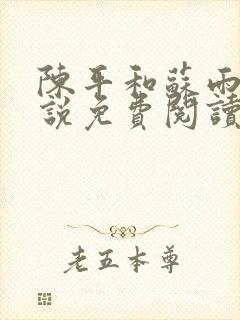 陳平和蘇雨
說免費閱讀
老五本尊